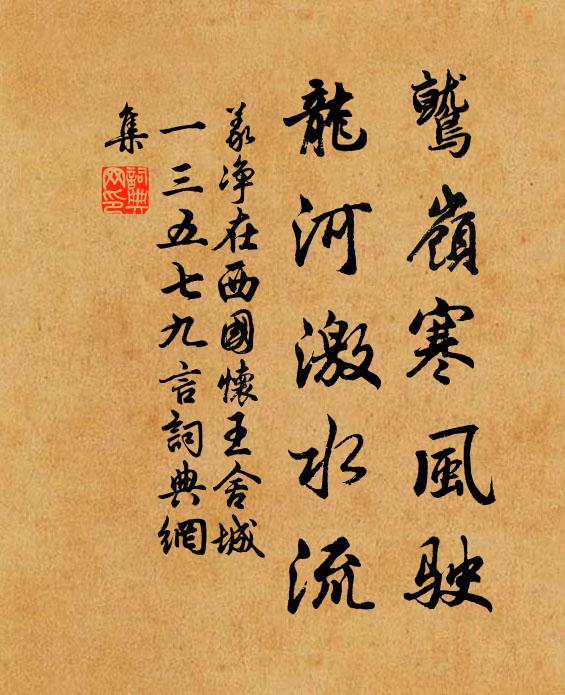 鷲嶺寒風駛
龍河激水流
義淨在西國懷王舍城
一三五七九言詞典網
集
詞典
网印